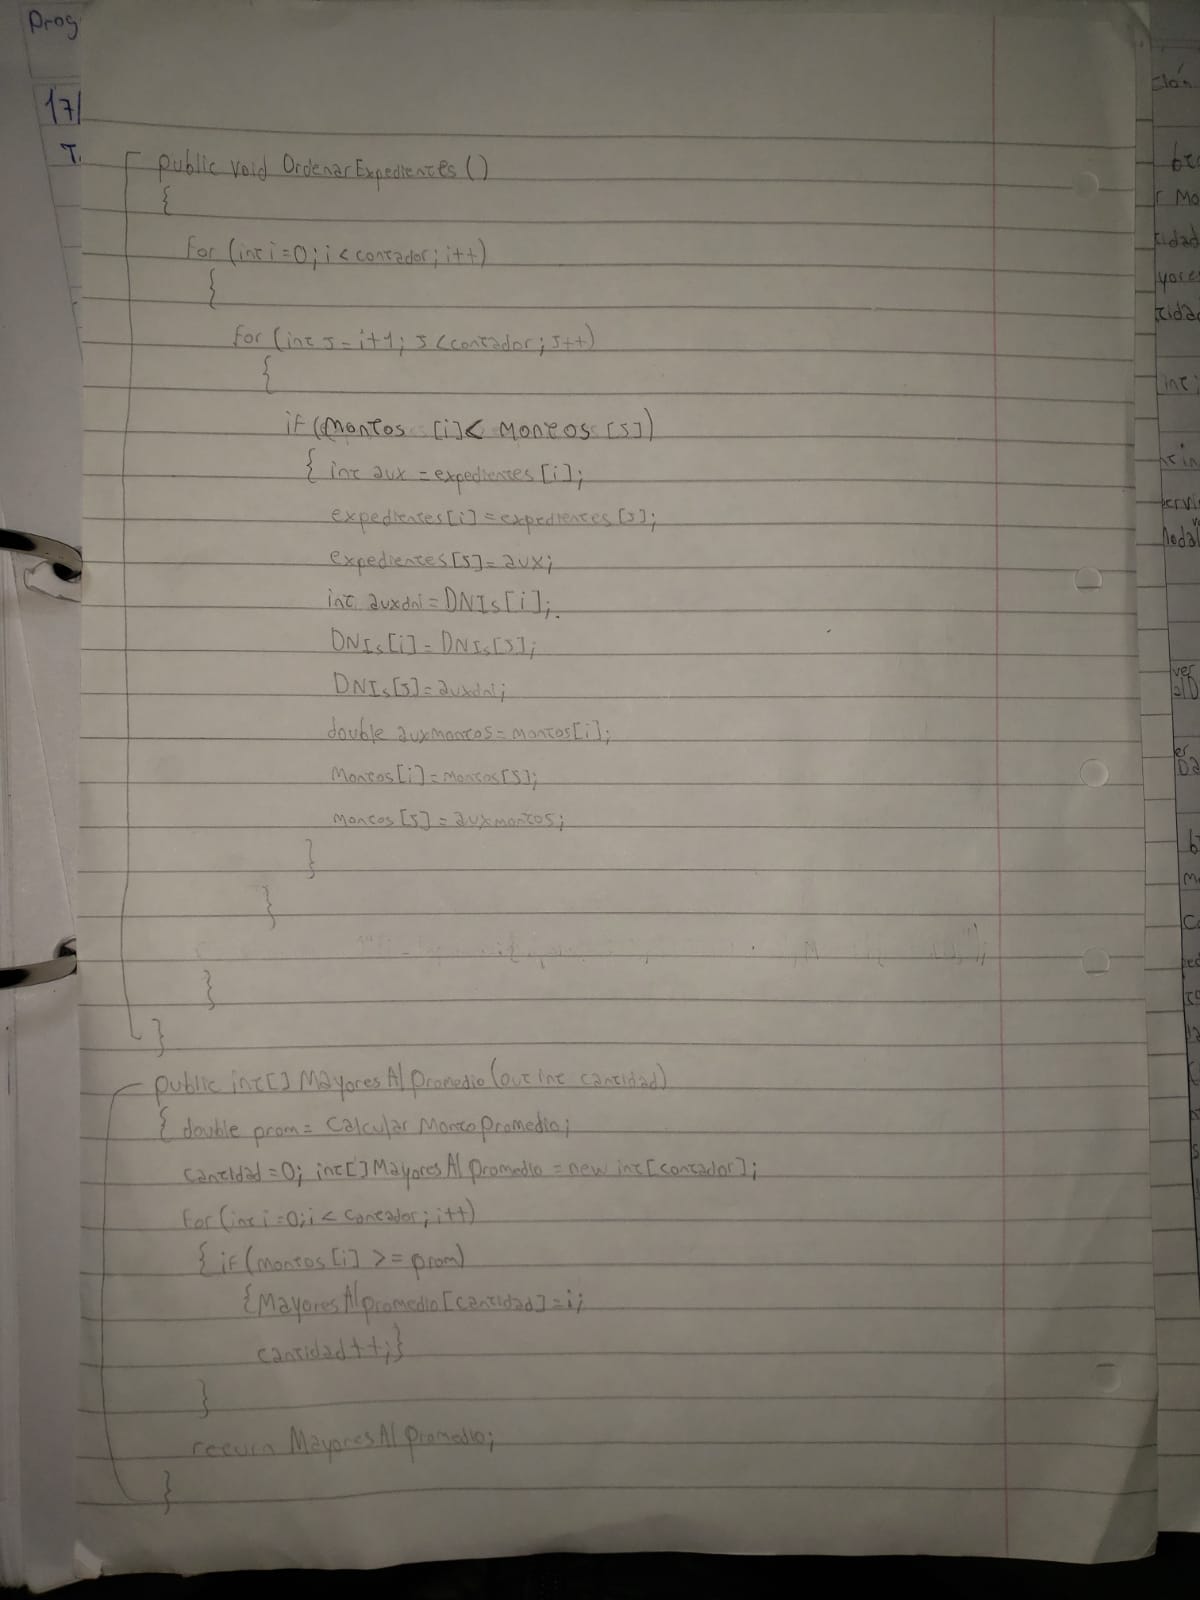 Prog
17/
T.
public void OrdenarExpedientes ()
{
for (int i=0; i < contador; i++)
{
for (int J = i+1; J < contador; J++)
{
if (montos [i] < Montos [J])
{ int aux = expedientes [i];
expedientes[i] = expedientes [J];
expedientes[J] = aux;
int auxdni = DNIs[i];
DNIs[i] = DNIs[J];
DNIs[J] = auxdni;
double auxmontos = montos[i];
Montos[i] = montos[J];
montos[J] = auxmontos;
}
}
}
}
public int[] MayoresAlPromedio (out int cantidad)
{ double prom = CalcularMontoPromedio;
cantidad = 0; int[] MayoresAlpromedio = new int[contador];
for (int i = 0; i < contador; i++)
{ if (montos [i] >= prom)
{MayoresAlpromedio[cantidad] = i;
cantidad++;}
}
return MayoresAlPromedio;
}